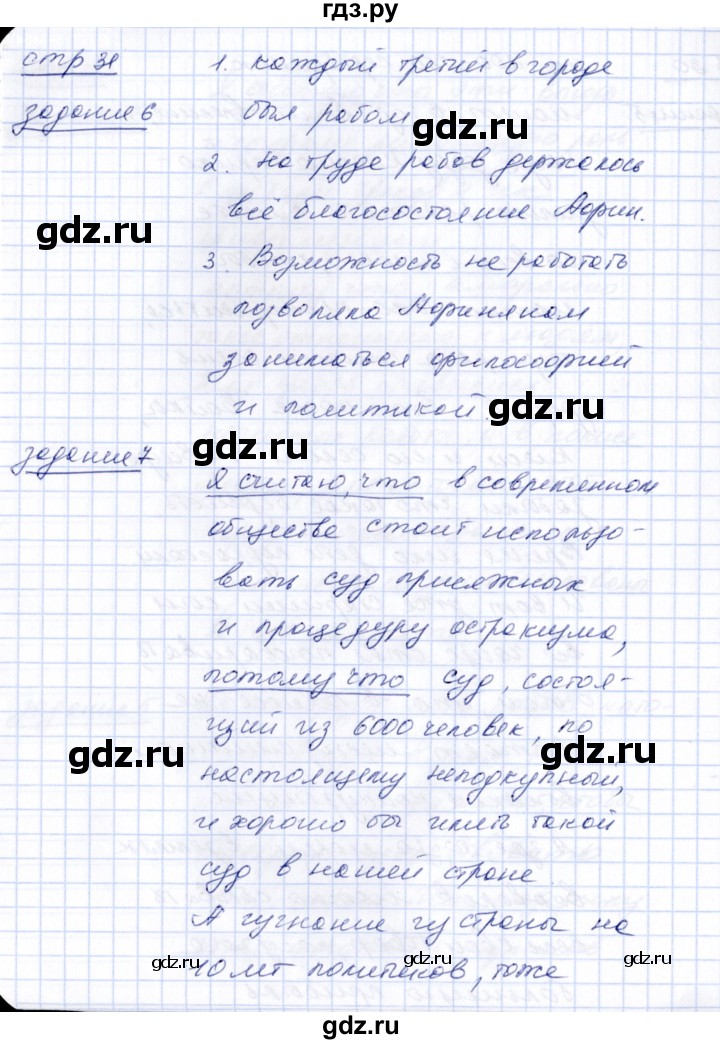 гдз.ру
стр 31
1. каждый третий в городе
задание 6
был рабом
gdz.ru
2. На труде рабов держалось
gdz.ru
всё благосостояние Афин.
3. Возможность не работать
позволяла Афинянам
заниматься философией
gdz.ru
и политикой.
gdz.ru
задание 7
Я считаю, что в современном
обществе стоит использо-
вать суд присяжных
и процедуру остракизма,
gdz.ru
потому что суд, состоя-
щий из 6000 человек, по
gdz.ru
gdz.ru
настоящему неподкупный,
и хорошо бы иметь такой
суд в нашей стране.
gdz.ru
А изгнание из страны на
gdz.ru
10 лет политиков, тоже
gdz.ru
gdz.ru